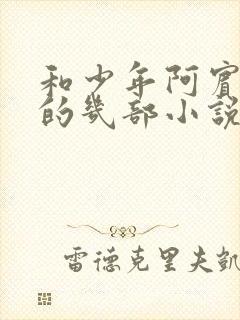 和少年阿賓
的幾部小說
雷德克里夫凱